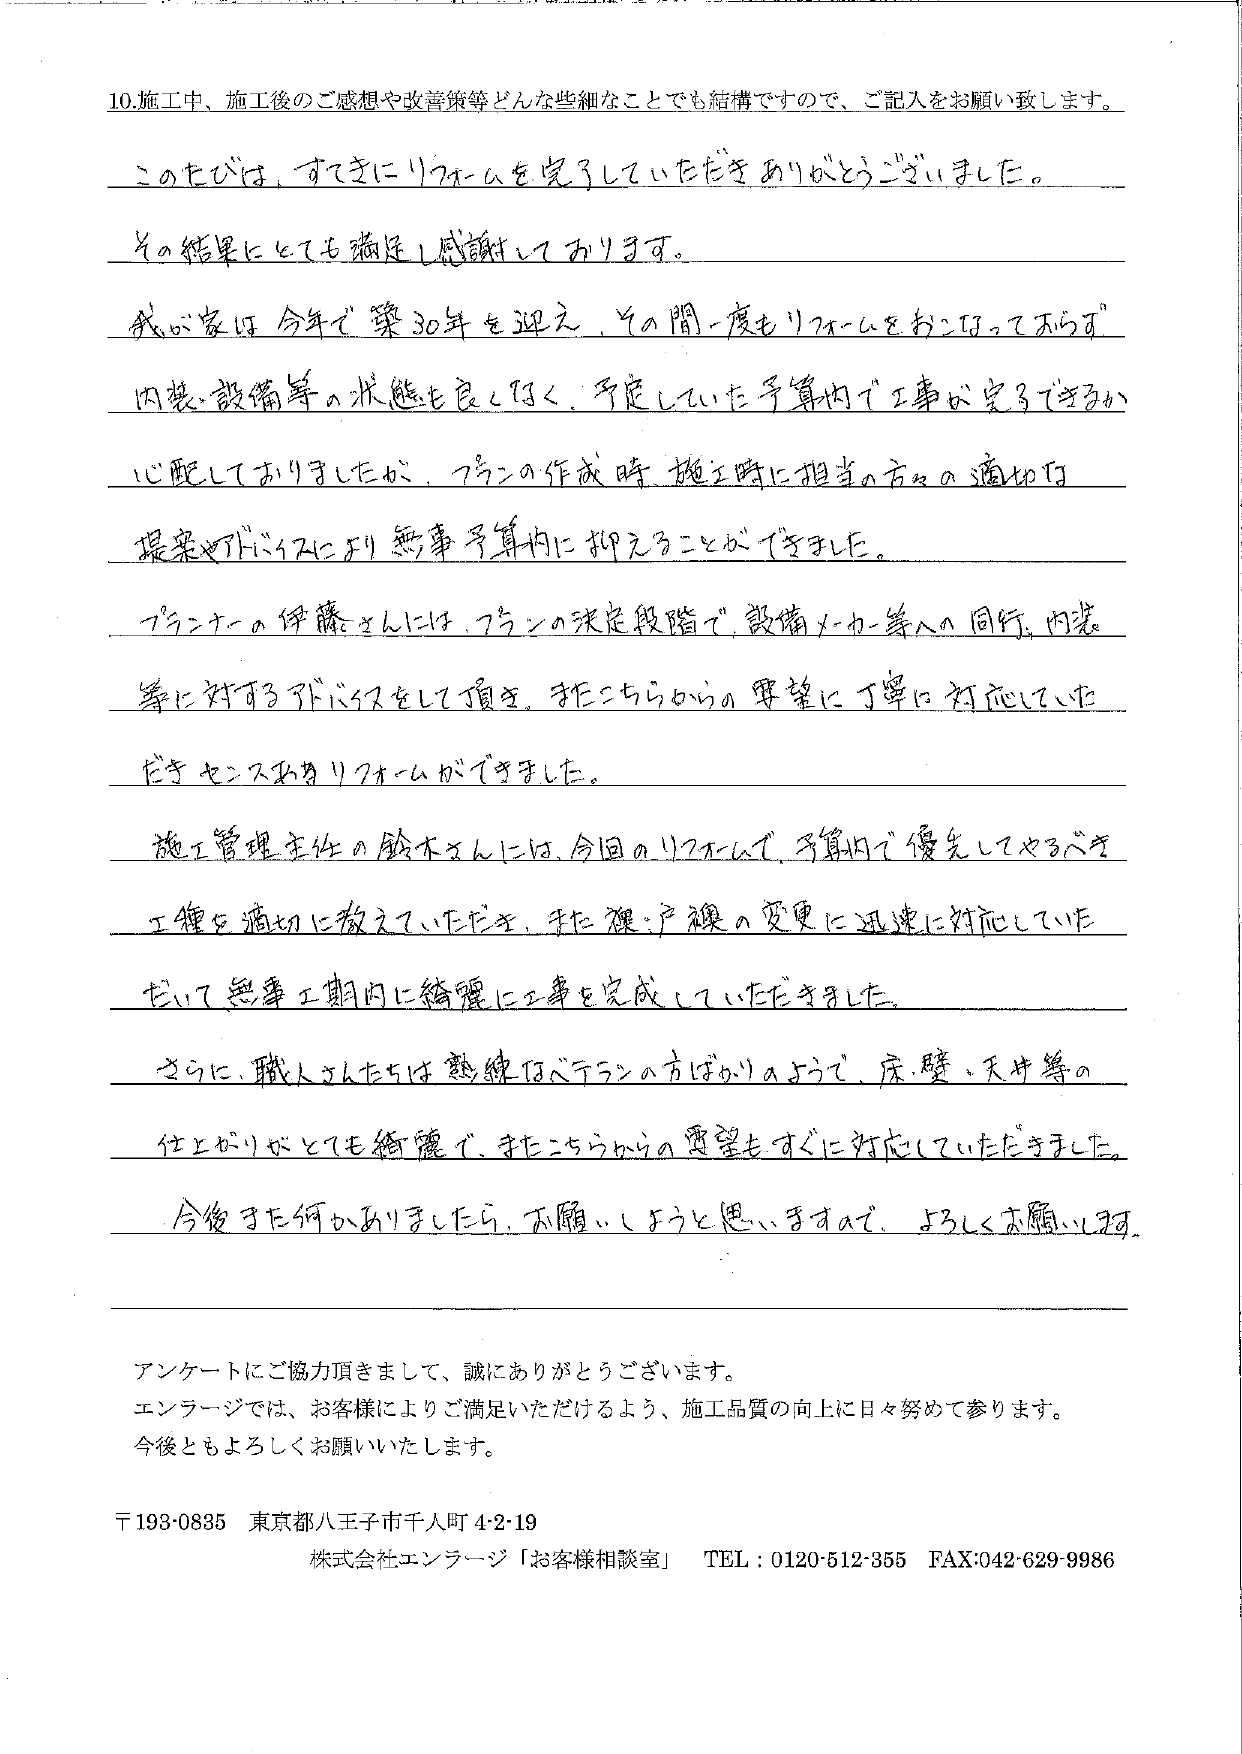 10.施工中、施工後のご感想や改善策等どんな些細なことでも結構ですので、ご記入をお願い致します。
このたびは、すてきにリフォームを完了していただきありがとうございました。
その結果にとても満足し感謝しております。
我が家は今年で築30年を迎え、その間一度もリフォームをおこなっておらず
内装・設備等の状態も良くなく、予定していた予算内で工事が完了できるか
心配しておりましたが、プランの作成時、施工時に担当の方々の適切な
提案やアドバイスにより無事予算内に抑えることができました。
プランナーの伊藤さんには、プランの決定段階で、設備メーカー等への同行、内装
等に対するアドバイスをして頂き、またこちらからの要望に丁寧に対応していた
だきセンスあるリフォームができました。
施工管理主任の鈴木さんには、今回のリフォームで、予算内で優先してやるべき
工種を適切に教えていただき、また襖・戸襖の変更に迅速に対応していた
だいて無事工期内に綺麗に工事を完成していただきました。
さらに、職人さんたちは熟練なベテランの方ばかりのようで、床・壁・天井等の
仕上がりがとても綺麗で、またこちらからの要望もすぐに対応していただきました。
今後また何かありましたら、お願いしようと思いますので、よろしくお願いします。
アンケートにご協力頂きまして、誠にありがとうございます。
エンラージでは、お客様によりご満足いただけるよう、施工品質の向上に日々努めて参ります。
今後ともよろしくお願いいたします。
〒193-0835 東京都八王子市千人町 4-2-19
株式会社エンラージ「お客様相談室」 TEL：0120-512-355 FAX:042-629-9986